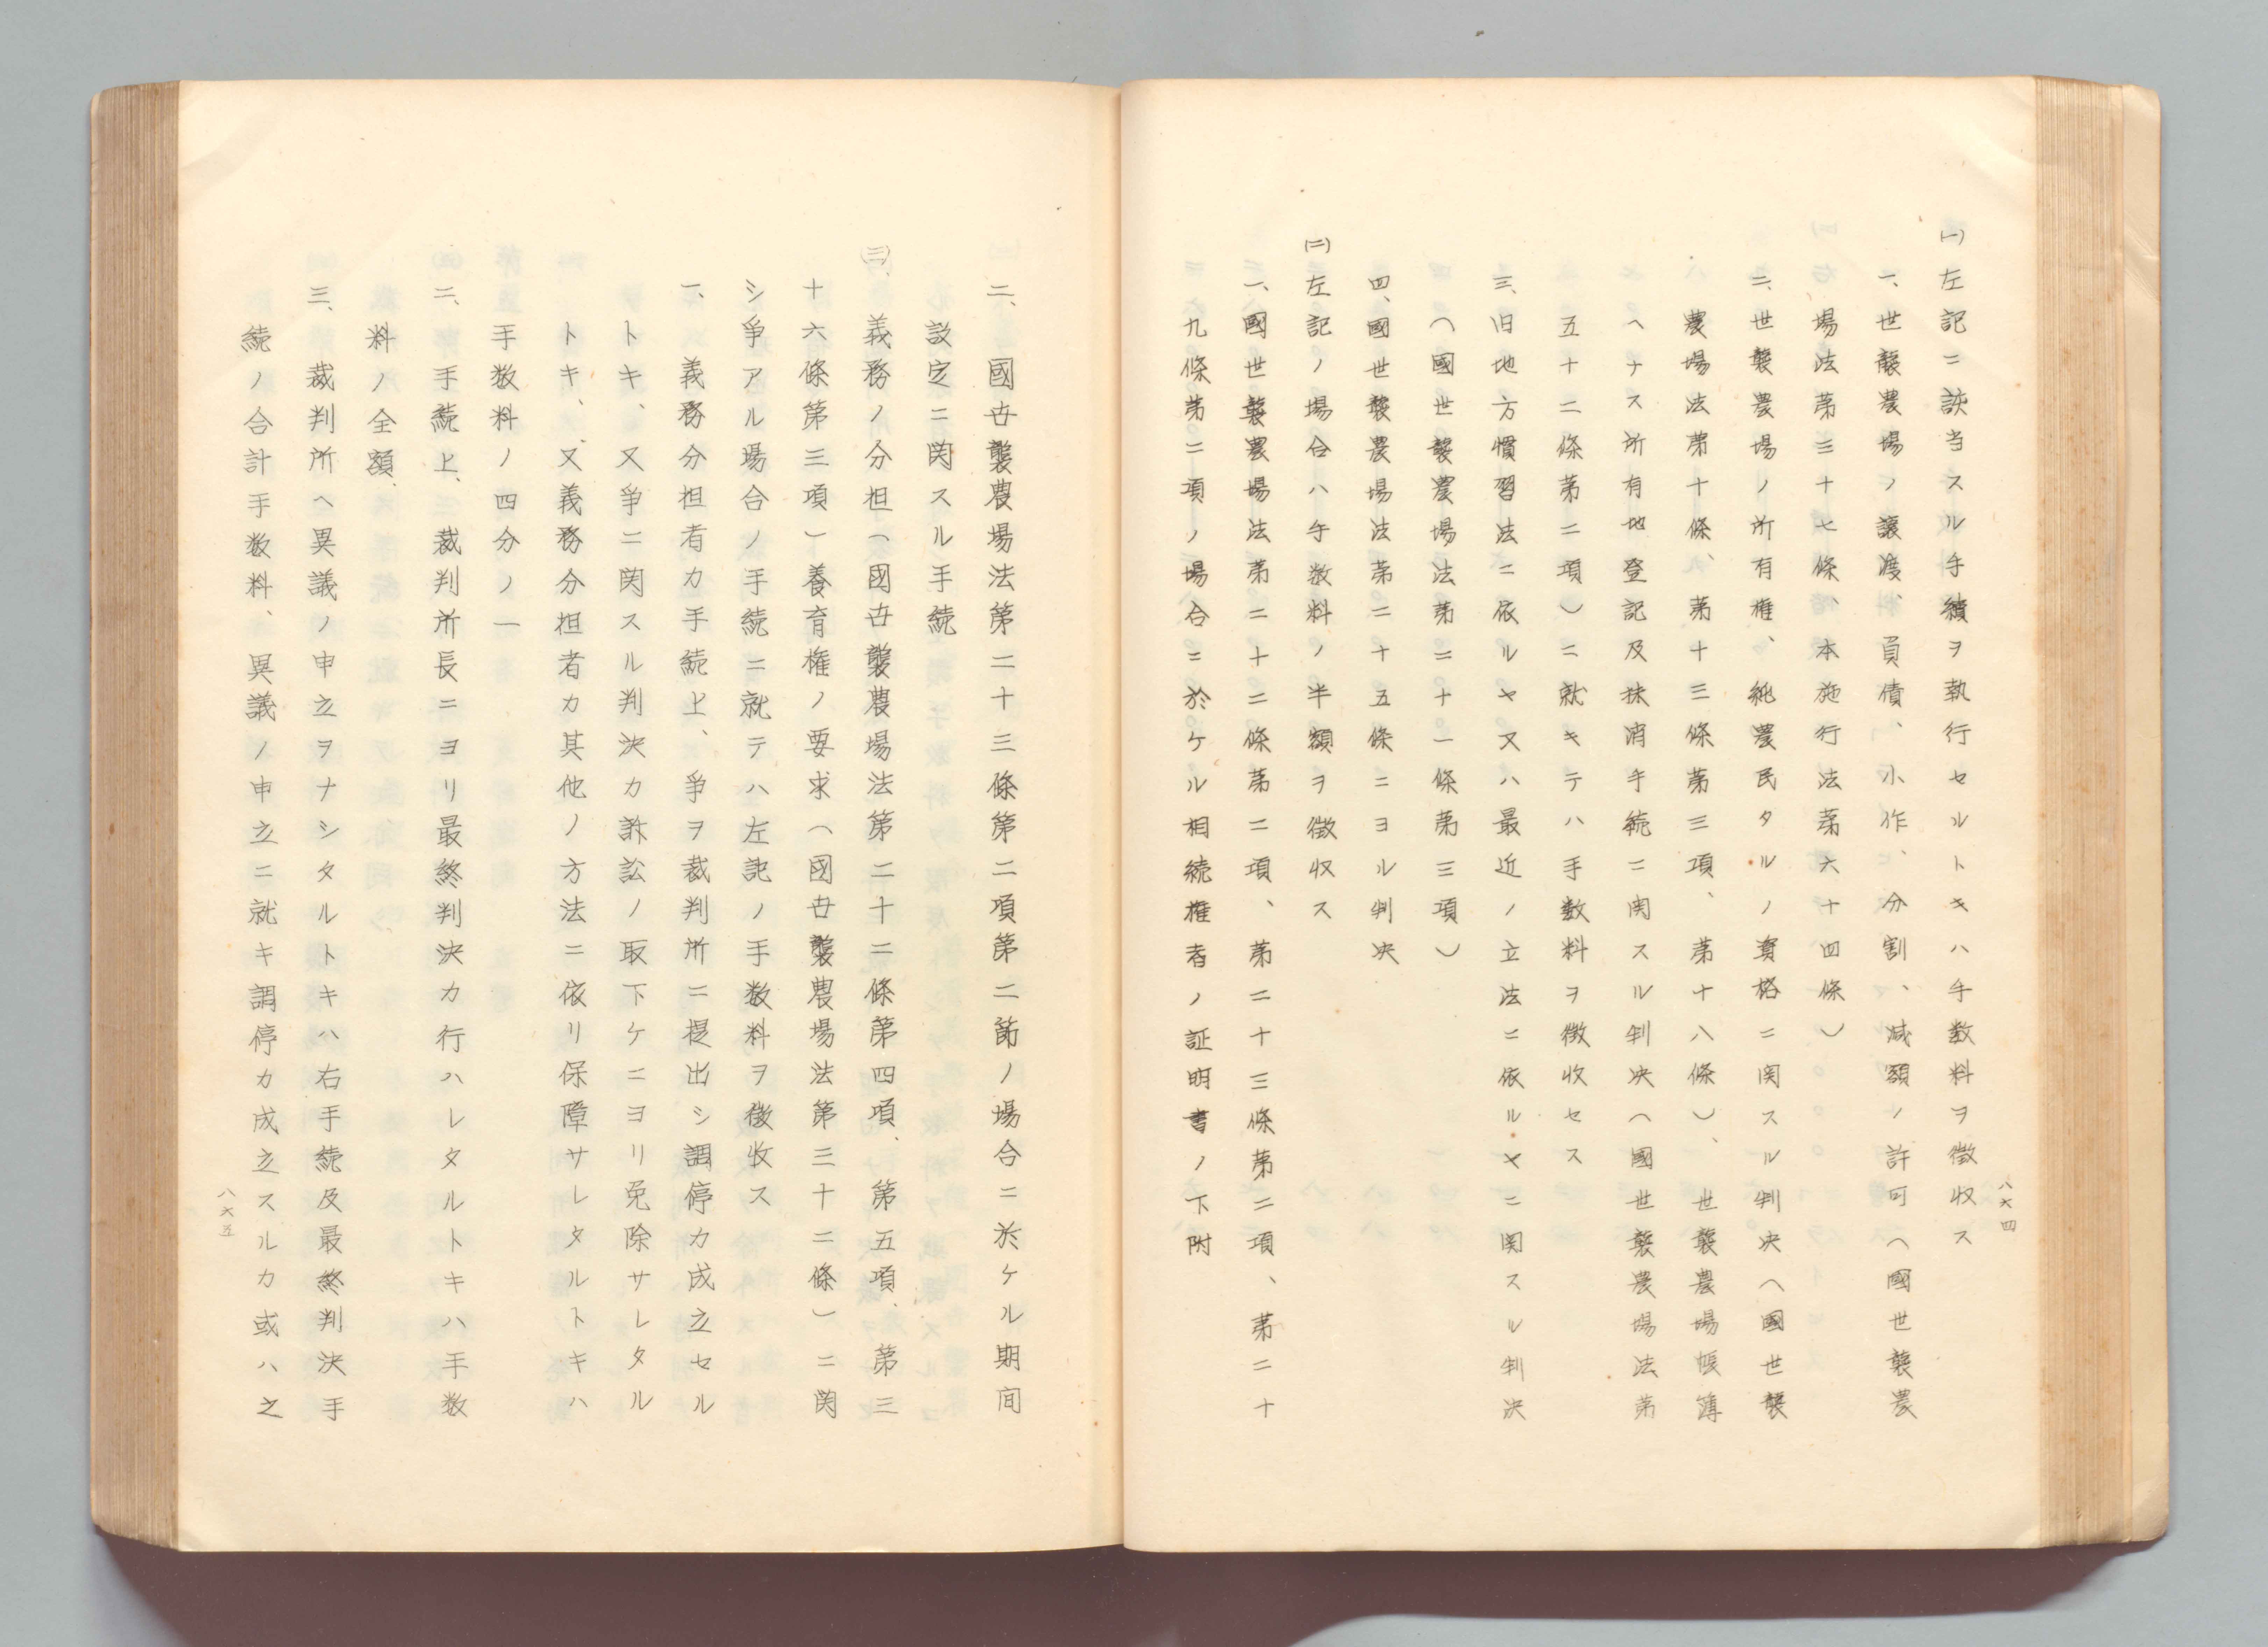 八六四
(一)左記ニ該当スル手續ヲ執行セルトキハ手数料ヲ徴収ス
一、世襲農場ノ讓渡、負債、小作、分割、減額ノ許可(國世襲農
場法第三十七條、本施行法第六十四條)
二、世襲農場ノ所有権、純農民タルノ資格ニ関スル判决(國世襲
農場法第十條、第十三條第三項、第十八條)、世襲農場帳簿
ヘナス所有地登記及抹消手続ニ関スル判决(國世襲農場法第
五十二條第二項)ニ就キテハ手数料ヲ徴收セス
三、旧地方慣習法ニ依ルヤ又ハ最近ノ立法ニ依ルヤニ関スル判決
(國世襲農場法第二十一條第三項)
四、國世襲農場法第二十五條ニヨル判决
(二)左記ノ場合ハ手数料ノ半額ヲ徴収ス
一、國世襲農場法第二十二條第二項、第二十三條第二項、第二十
九條第二項ノ場合ニ於ケル相続権者ノ証明書ノ下附
二、國世襲農場法第二十三條第二項第二節ノ場合ニ於ケル期间
設定ニ関スル手続
(三)、義務ノ分担(國世襲農場法第二十二條第四項、第五項、第三
十六條第三項)養育権ノ要求(國世襲農場法第三十二條)ニ関
シ爭アル場合ノ手続ニ就テハ左記ノ手数料ヲ徴收ス
一、義務分担者カ手続上、爭ヲ裁判所ニ提出シ調停カ成立セル
トキ、又爭ニ関スル判決カ訴訟ノ取下ケニヨリ免除サレタル
トキ、又義務分担者カ其他ノ方法ニ依リ保障サレタルトキハ
手数料ノ四分ノ一
二、手続上、裁判所長ニヨリ最終判決カ行ハレタルトキハ手数
料ノ全額、
三、裁判所ヘ異議ノ申立ヲナシタルトキハ右手続及最終判決手
続ノ合計手数料、異議ノ申立ニ就キ調停カ成立スルカ或ハ之
八六五